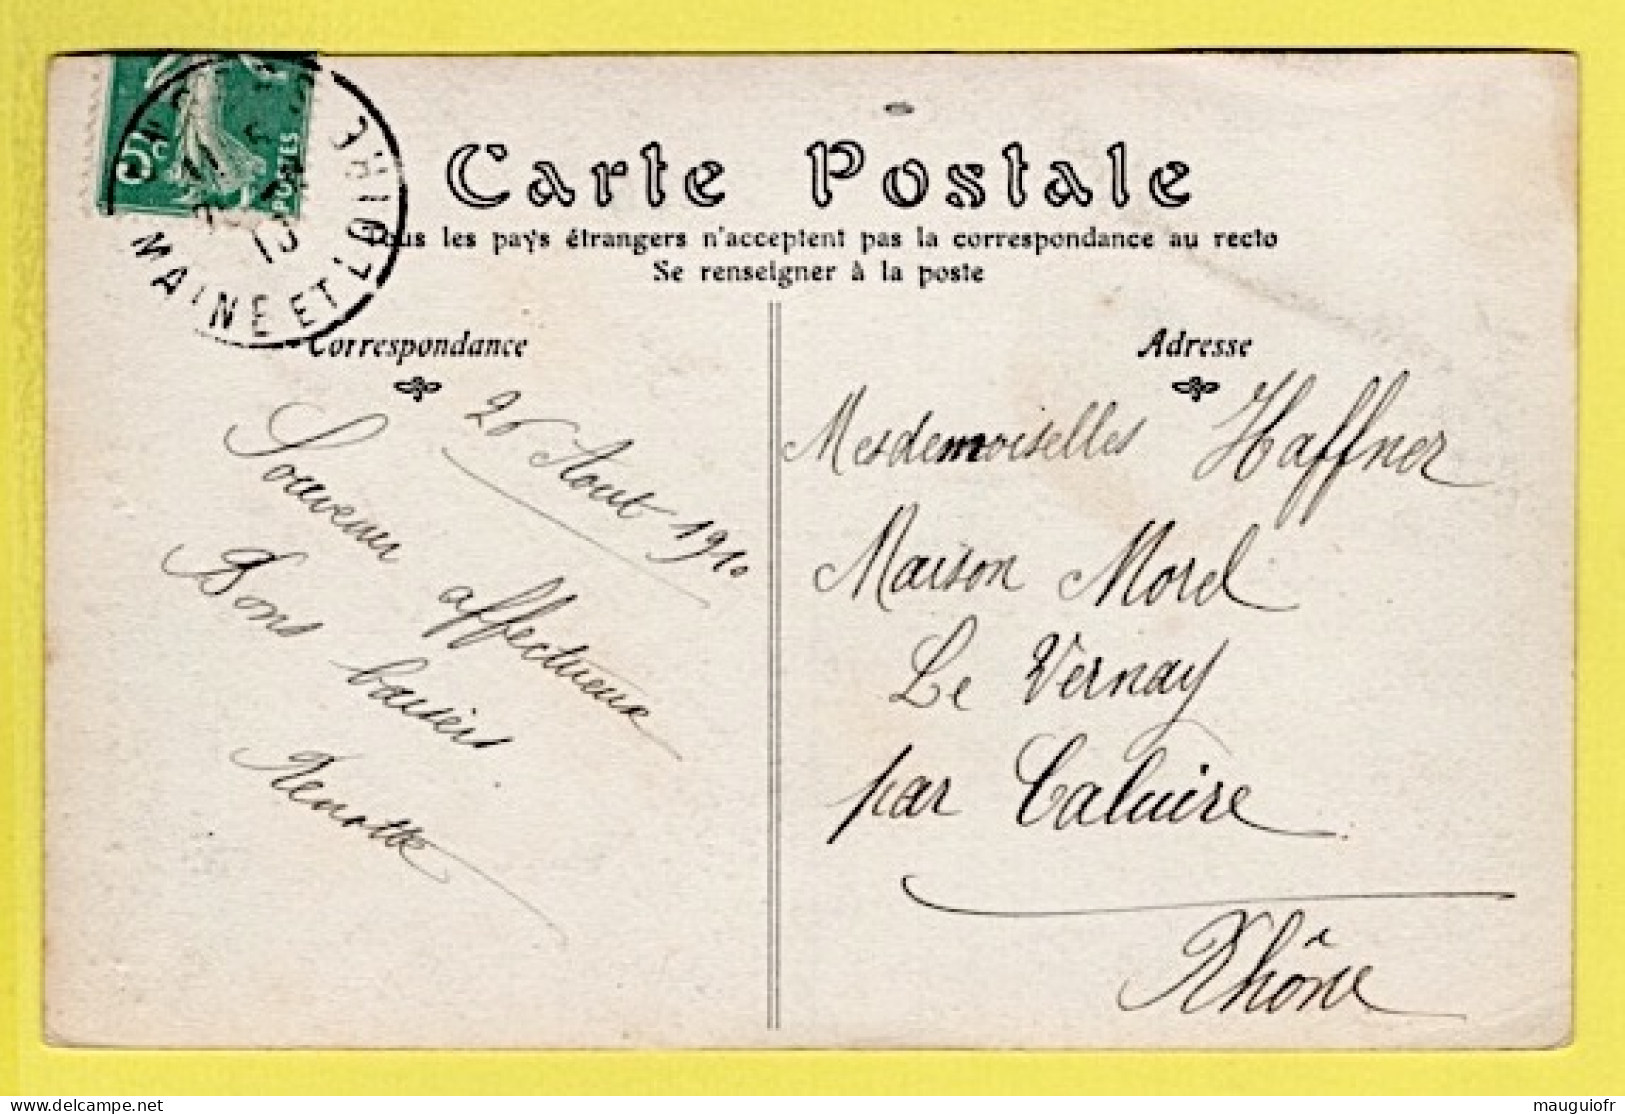 Carte Postale
Tous les pays étrangers n'acceptent pas la correspondance au recto
Se renseigner à la poste
5
POSTES
MAINE ET LOIRE
10
Correspondance
26 Aout 1910
Souvenir affectueux
Bons baisers
Renotte
Adresse
Mesdemoiselles Haffner
Maison Morel
Le Vernay
par Caluire
Rhône
mauguiofr